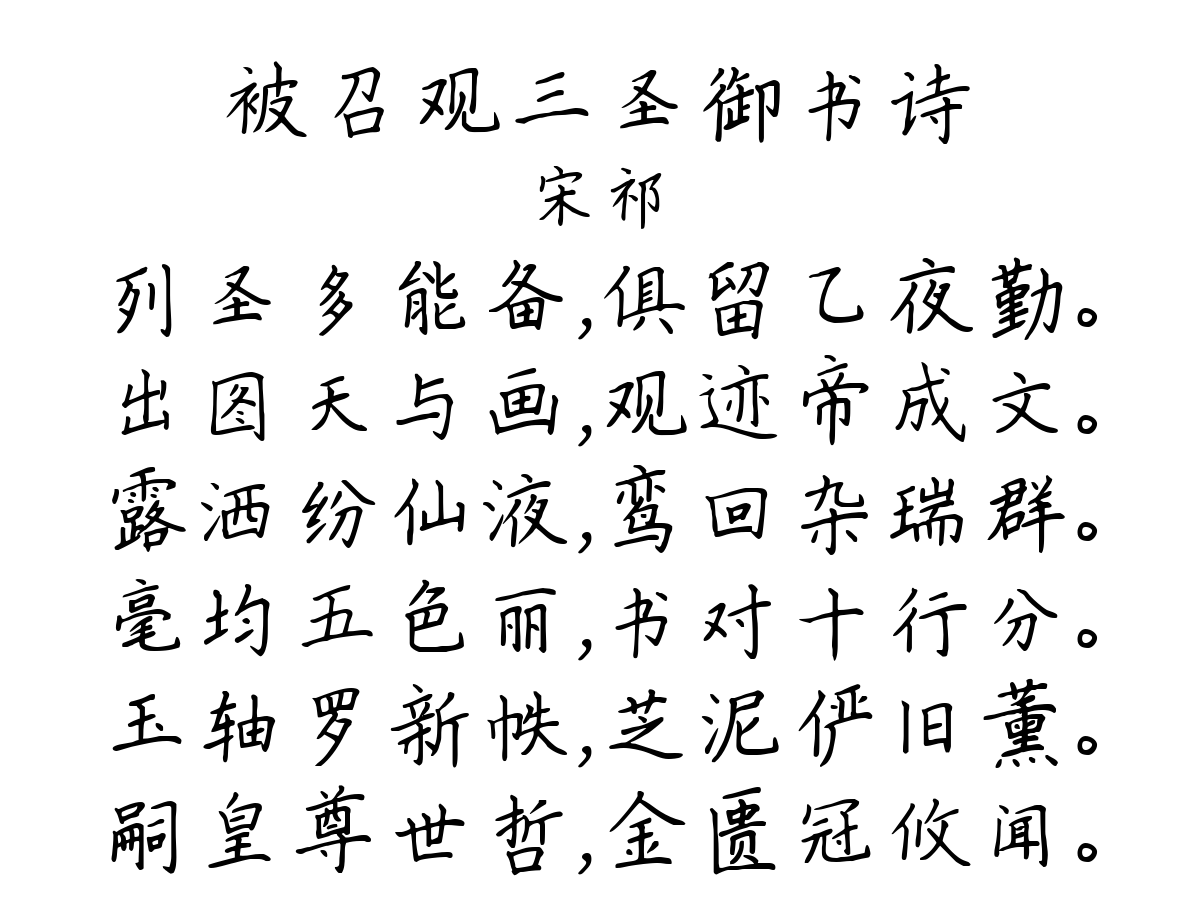 被召观三圣御书诗
宋祁
列圣多能备,俱留乙夜勤。
出图天与画,观迹帝成文。
露洒纷仙液,鸾回杂瑞群。
毫均五色丽,书对十行分。
玉轴罗新帙,芝泥俨旧薰。
嗣皇尊世哲,金匮冠攸闻。